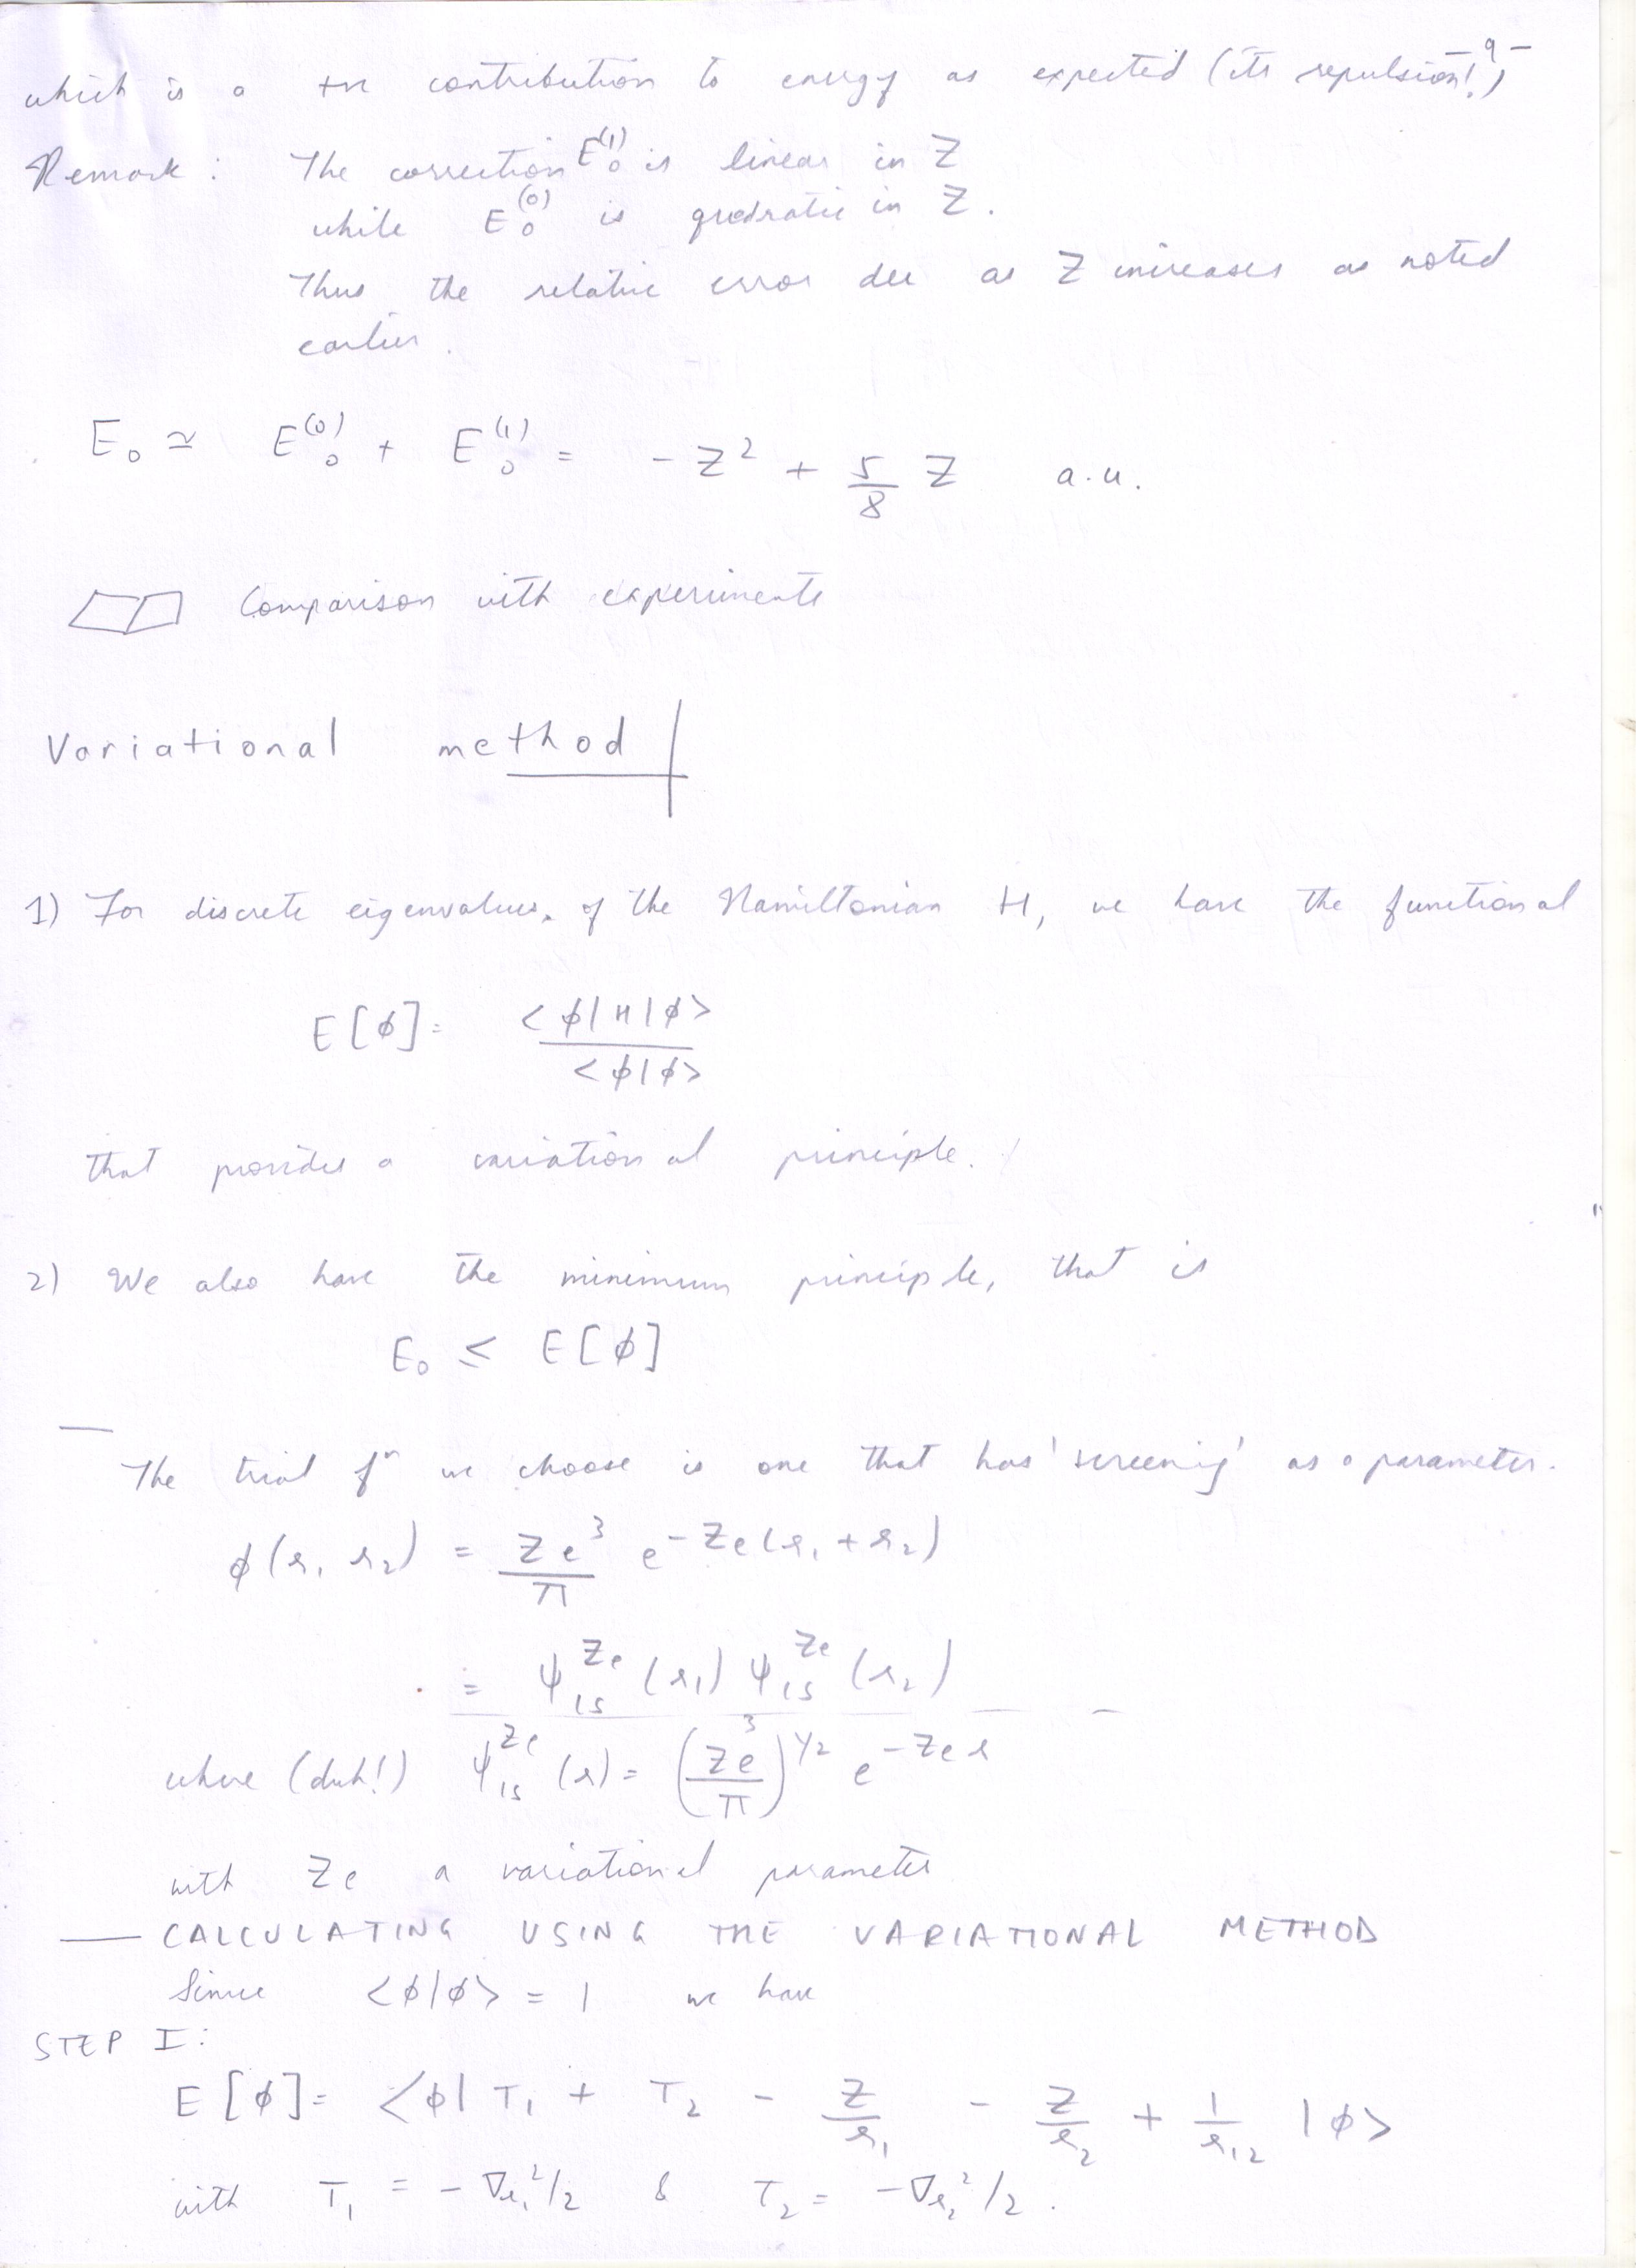 - 9 -
which is a +ve contribution to energy as expected (its repulsion!)
Remark : The correction E₀⁽¹⁾ is linear in Z
while E₀⁽⁰⁾ is quadratic in Z.
Thus the relative error dec as Z increases as noted
earlier.
E₀ ≃ E₀⁽⁰⁾ + E₀⁽¹⁾ = - Z² + 5/8 Z a.u.
Comparison with experiments
Variational method
1) For discrete eigenvalues of the Hamiltonian H, we have the functional
E[ϕ] = <ϕ|H|ϕ> / <ϕ|ϕ>
that provides a variational principle.
2) We also have the minimum principle, that is
E₀ ≤ E[ϕ]
— The trial fⁿ we choose is one that has 'screening' as a parameter.
ϕ(r₁ r₂) = Ze³/π e^{-Ze(r₁+r₂)}
= ψ₁ₛ^{Ze}(r₁) ψ₁ₛ^{Ze}(r₂)
where (duh!) ψ₁ₛ^{Ze}(r) = (Ze³/π)^{1/2} e^{-Zer}
with Ze a variational parameter
— CALCULATING USING THE VARIATIONAL METHOD
Since <ϕ|ϕ> = 1 we have
STEP I:
E[ϕ] = <ϕ| T₁ + T₂ - Z/r₁ - Z/r₂ + 1/r₁₂ |ϕ>
with T₁ = -∇r₁²/2 & T₂ = -∇r₂²/2.